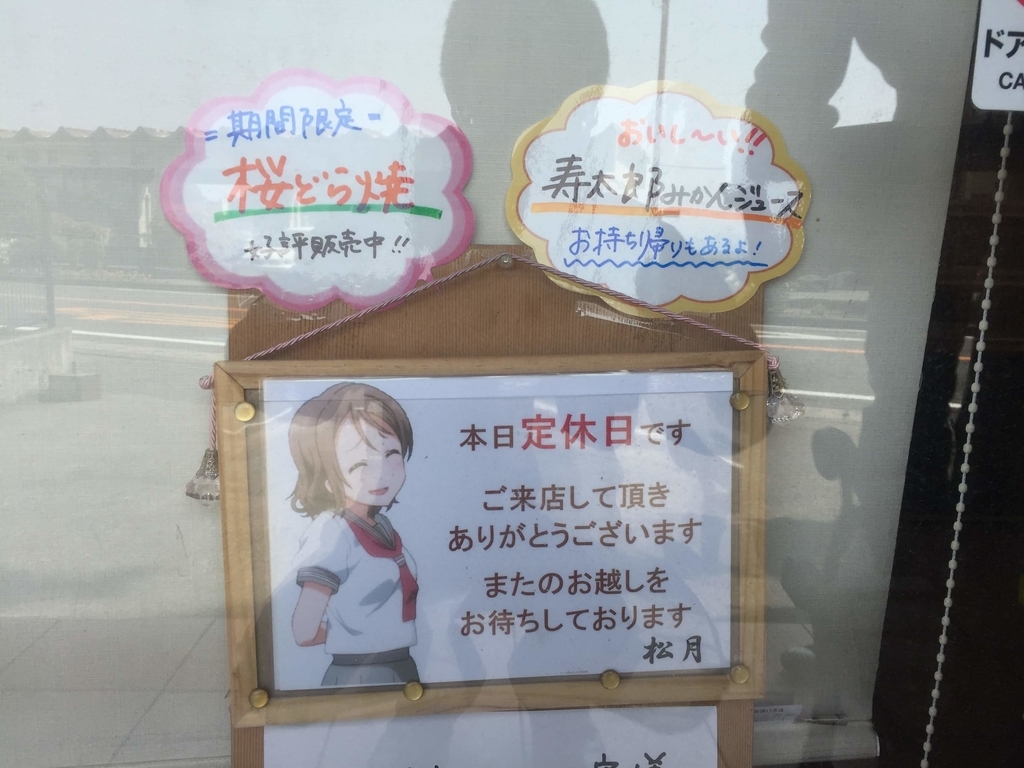 =期間限定-
桜どら焼
好評販売中!!
おいし〜い!!
寿太郎みかんジュース
お持ち帰りもあるよ!
ドア
CA
本日定休日です
ご来店して頂き
ありがとうございます
またのお越しを
お待ちしております
松月